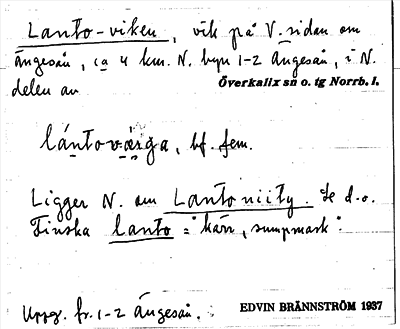 Lanto-viken, vik på V. sidan om
ängesån, ca 4 km. N. byn 1-2 Ängesån, i N.
delen av
Överkalix sn o. tg Norrb. l.
lántovärga, bf. fem.
Ligger N. om Lantoniity. Se d.o.
Finska lanto = "kärr, sumpmark".
Uppg. fr. 1-2 Ängesån.
EDVIN BRÄNNSTRÖM 1937